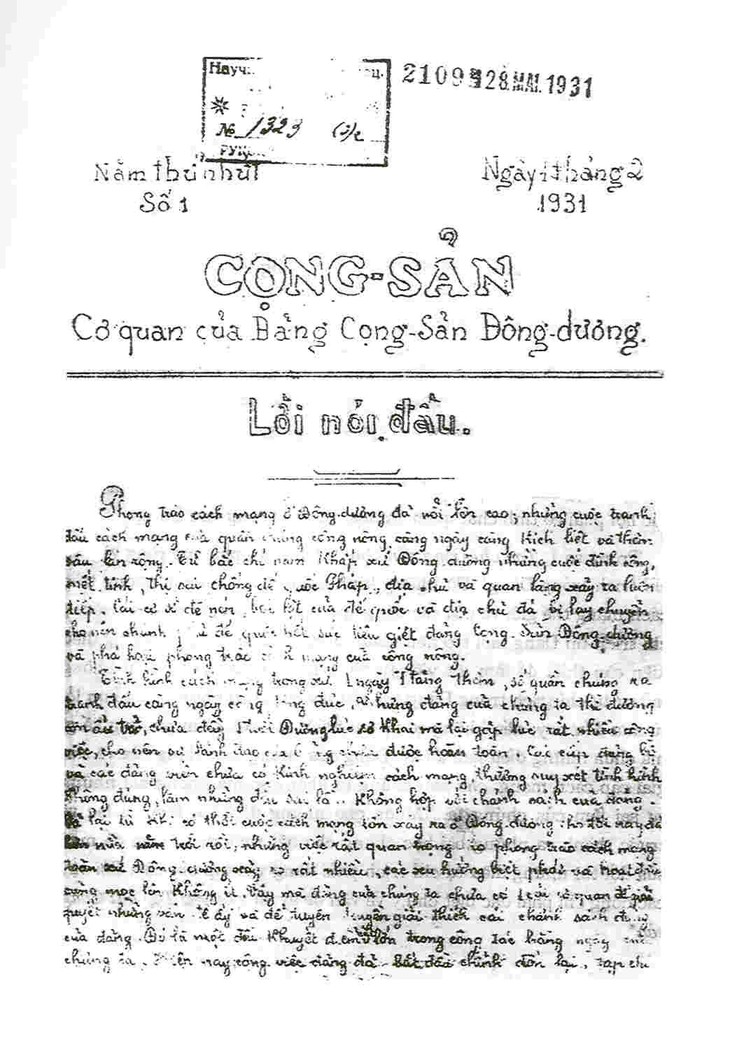 Науч
21093 28 MAI 1931
№ 1323
Năm thứ nhứt
Ngày 1 tháng 2
Số 1
1931
CỌNG-SẢN
Cơ quan của Đảng Cọng-Sản Đông-dương.
Lời nói đầu.
Phong trào cách mạng ở Đông-dương đã nổi lên cao; những cuộc tranh
đấu cách mạng của quần chúng công nông càng ngày càng kích liệt và thâm
sâu lan rộng. Từ bắc chí nam khắp xứ Đông-dương những cuộc đình công,
mét tinh, thị oai chống đế quốc Pháp, địa chủ và quan làng xảy ra luôn
tiếp. của đế quốc và địa chủ đã bị lay chuyển
cho nên chánh đế quốc hết sức tiêu giệt đảng Cọng-Sản Đông-dương
và phá hoại phong trào cách mạng của công nông.
Tình hình cách mạng trong xứ ngày thêm, số quần chúng ra
tranh đấu càng ngày càng đông đúc, nhưng đảng của chúng ta thì đương
còn ấu trĩ, chưa đầy tuổi. Đương lúc sơ khai mà lại gặp lúc rất nhiều công
việc, cho nên sự lãnh đạo của Đảng chưa được hoàn toàn. Các cấp đảng bộ
và các đảng viên chưa có kinh nghiệm cách mạng, thường suy xét tình hình
không đúng, làm những điều sai lầm không hợp với chánh sách của đảng.
Và lại từ khi có thời cuộc cách mạng lớn xảy ra ở Đông-dương cho tới nay đã
hơn nửa năm trời rồi; những việc rất quan trọng phong trào cách mạng
toàn xứ Đông-dương xảy ra rất nhiều, các xu hướng biệt phái và hoạt đầu
cũng mọc lên không ít, vậy mà đảng của chúng ta chưa có cơ quan để giải
quyết những vấn đề ấy và để tuyên truyền giải thích cái chánh sách
của đảng. Đó là một điều khuyết điểm lớn trong công tác hằng ngày của
chúng ta. Hiện nay công việc đảng đã bắt đầu chỉnh đốn lại, tạp chí